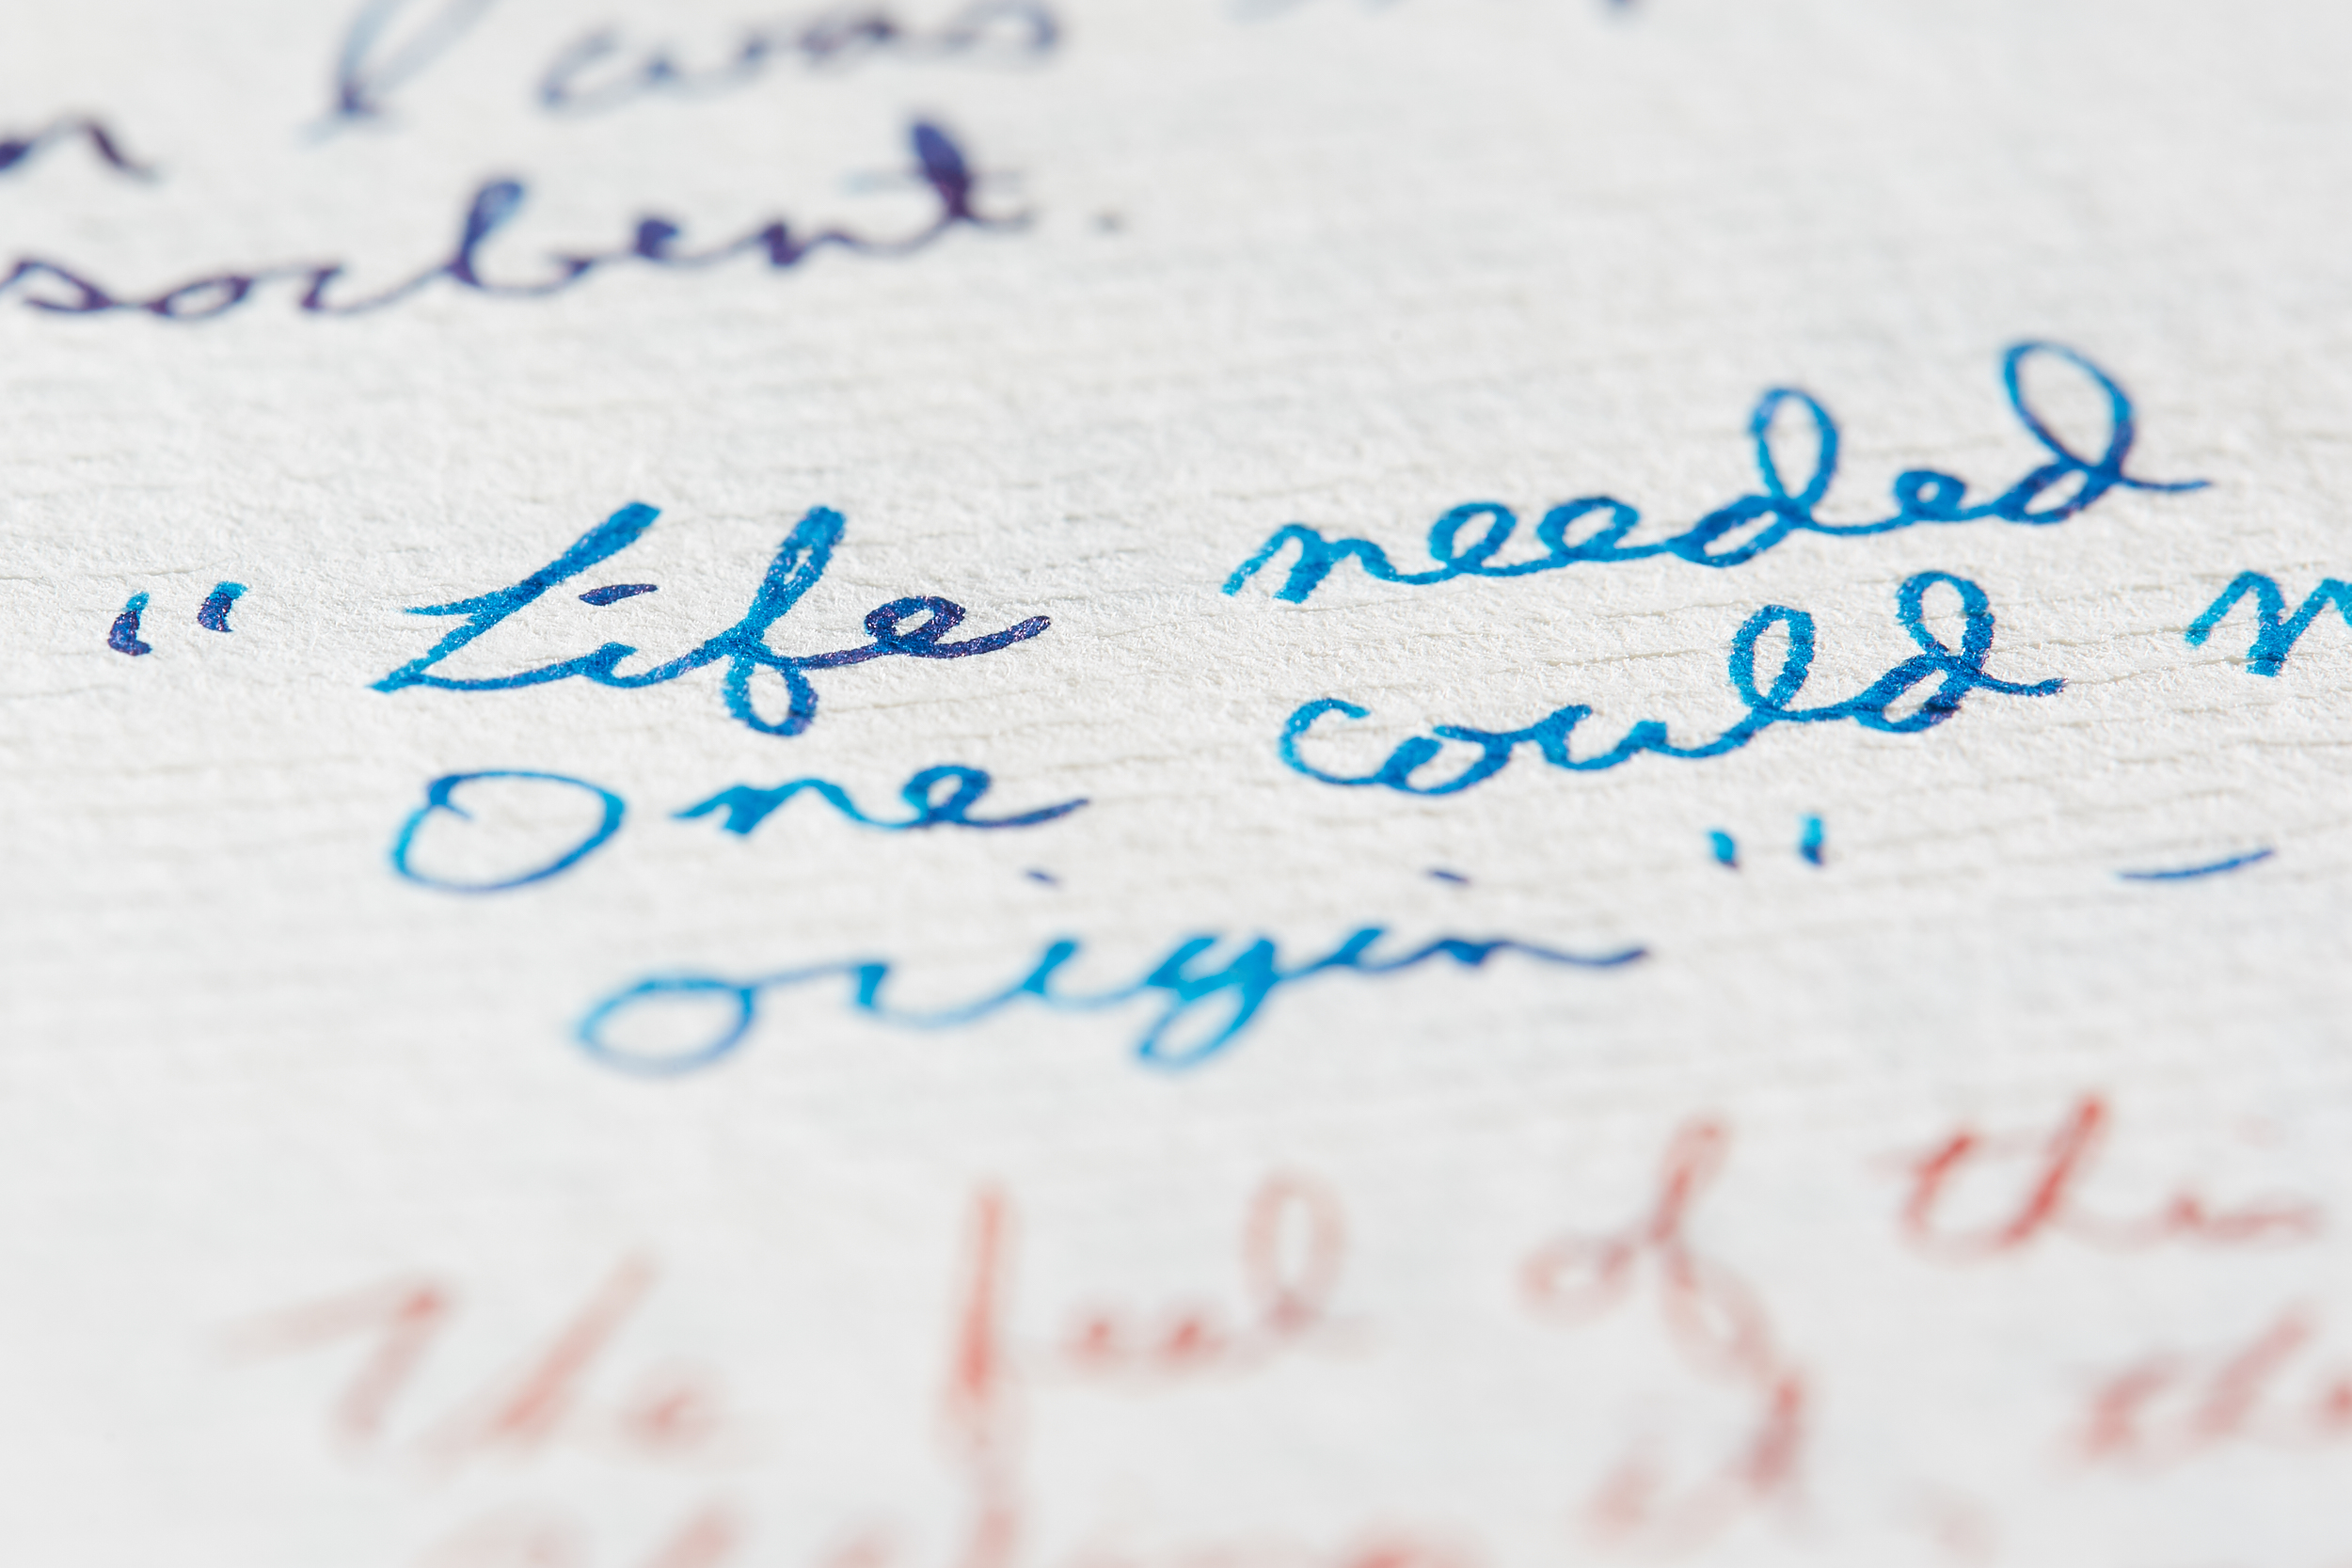 I was
sorbent.
"Life needed
One could
origin" –
The feel of the